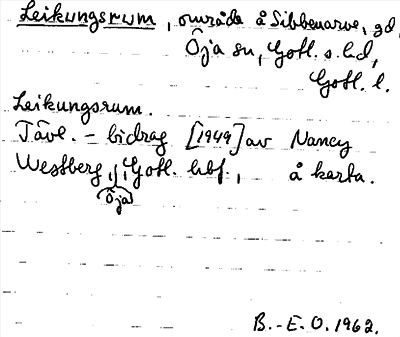 Leikungsrum, område å Sibbenarve, gd,
Öja sn, Gotl. s. hd,
Gotl. l.
Leikungsrum.
Tävl. - bidrag [1949] av Nancy
Westberg, Gotl. hbf., å karta.
Öja
B.-E. O. 1962.